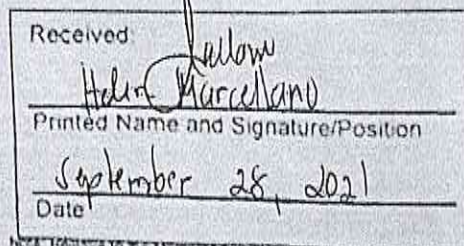 Received:
Marcellano
Printed Name and Signature/Position
September 28, 2021
Date